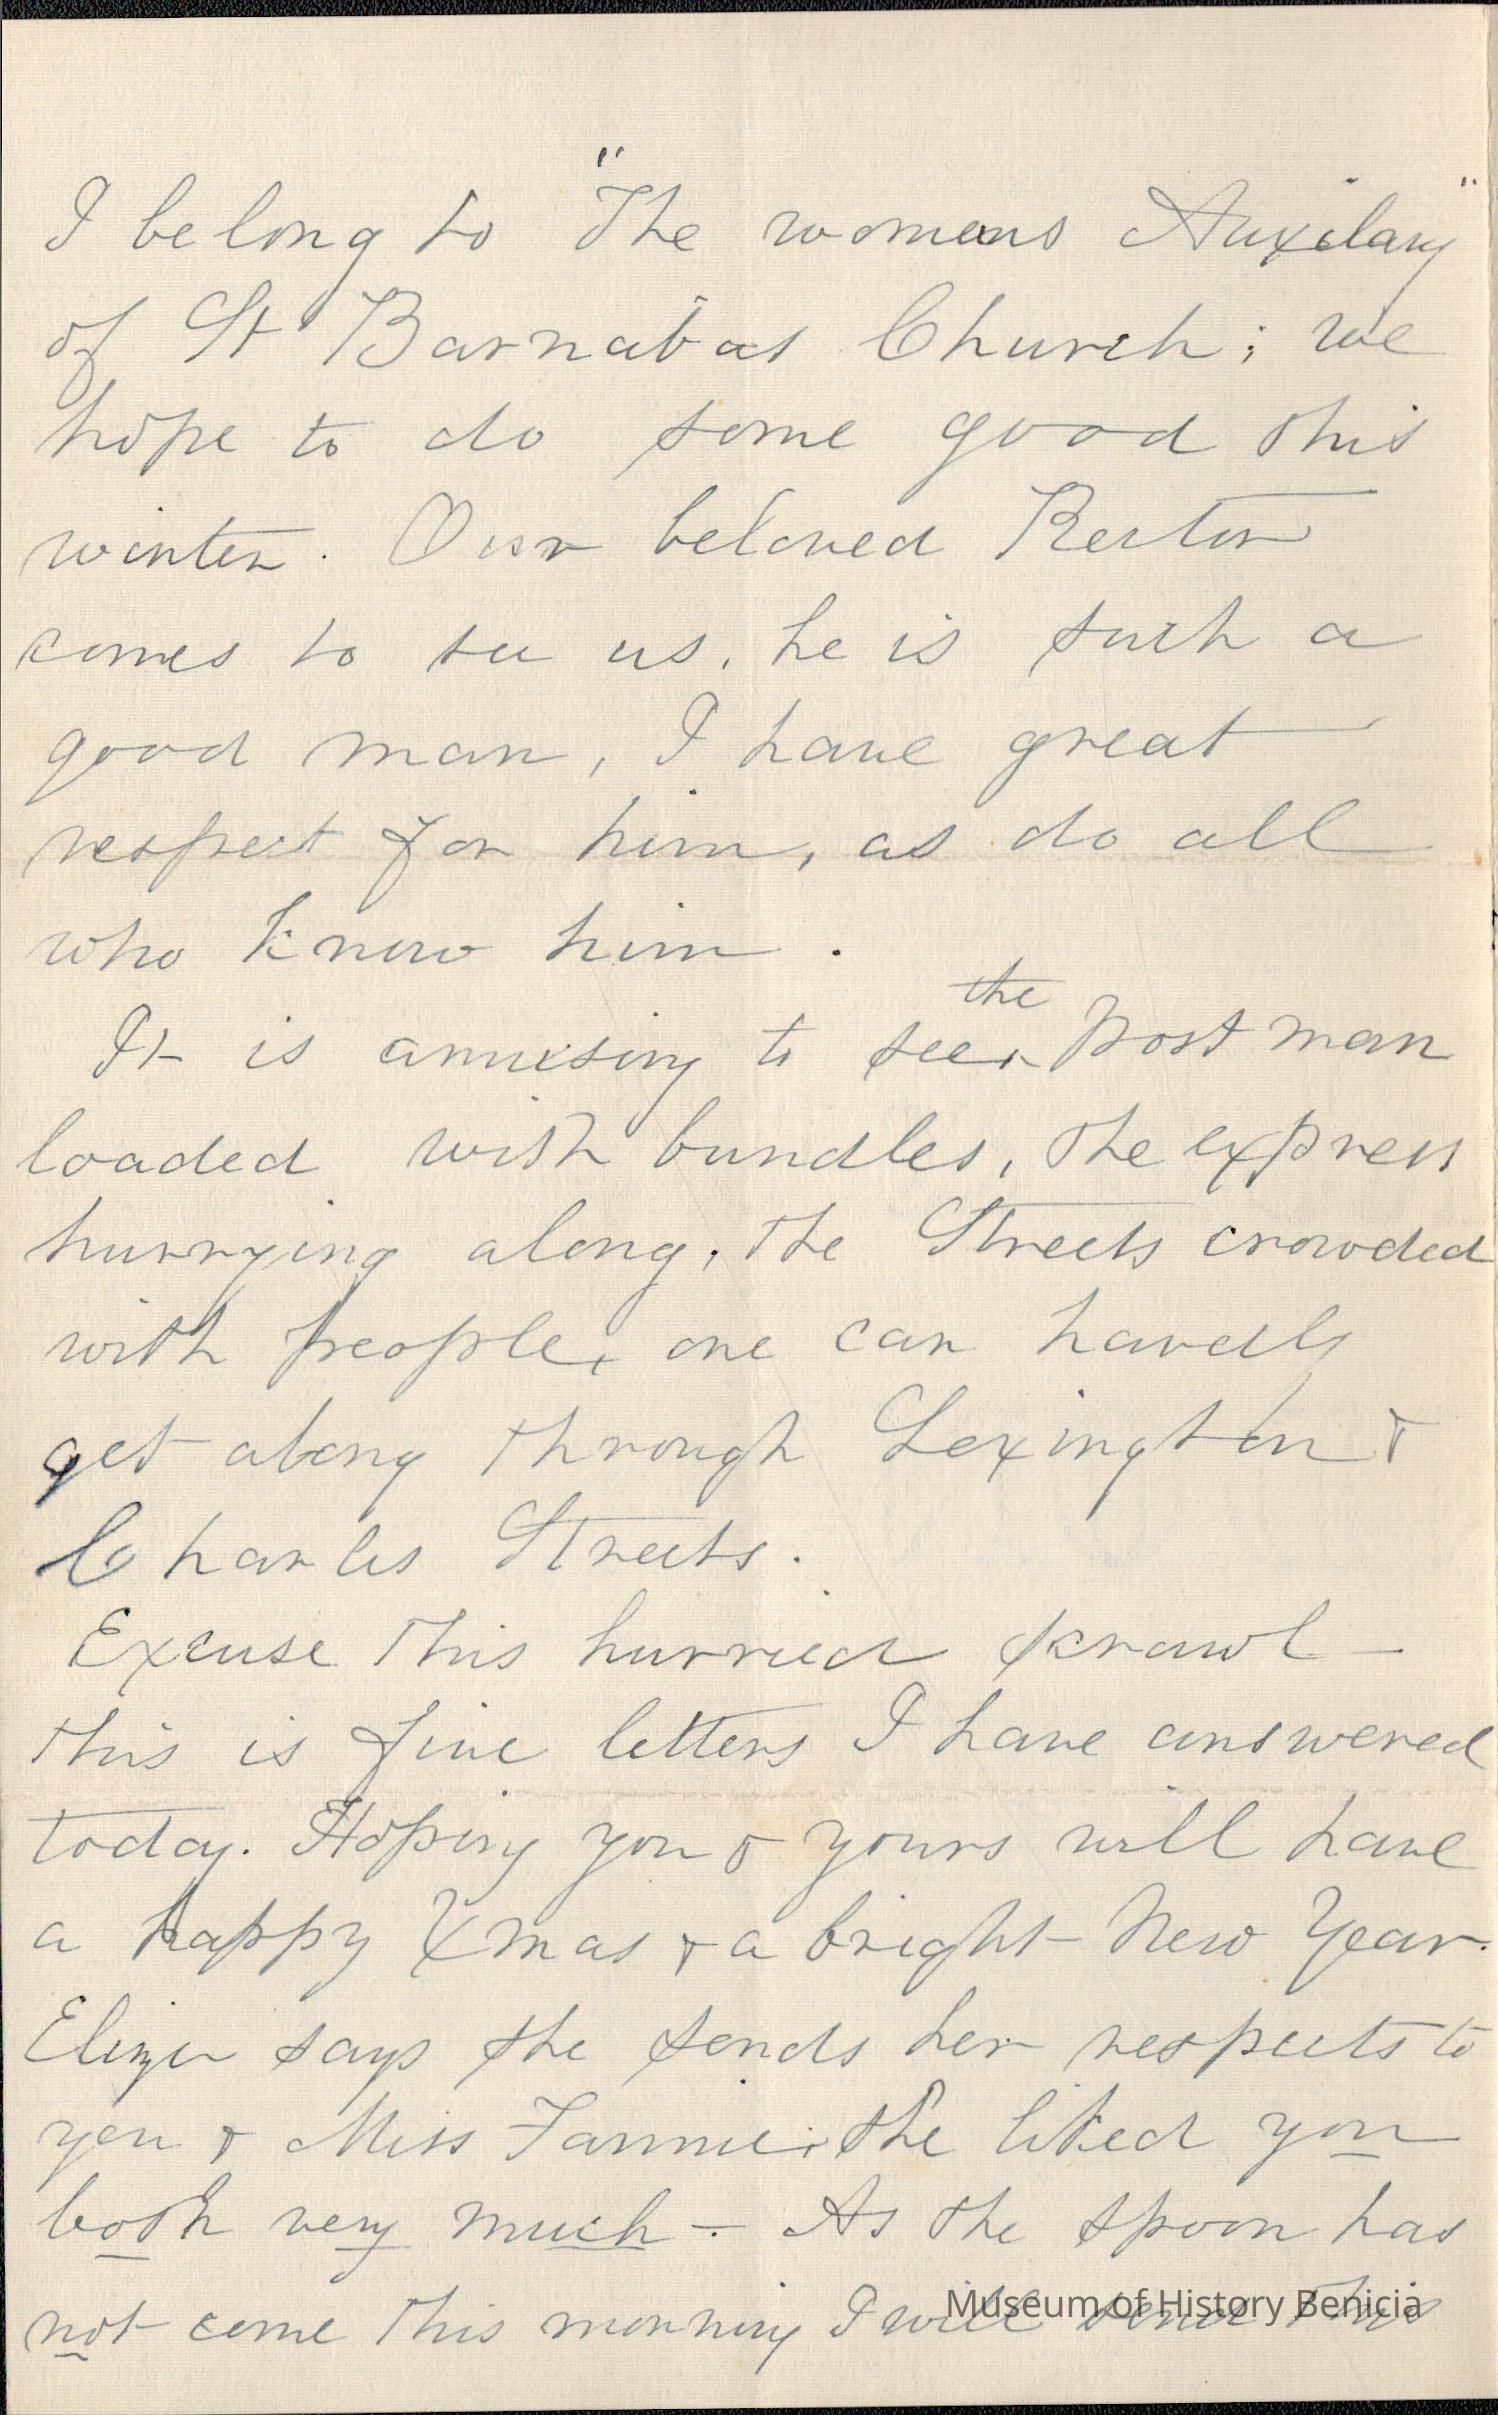 I belong to "The womens Auxilary"
of St Barnabas Church; we
hope to do some good this
winter. Our beloved Rector
comes to see us, he is such a
good man, I have great
respect for him, as do all
who know him.
the
It is amusing to see Post man
loaded with bundles, the express
hurrying along, the Streets crowded
with people, one can hardly
get along through Lexington &
Charles Streets.
Excuse this hurried scrawl —
this is five letters I have answered
today. Hoping you & yours will have
a happy Xmas & a bright New Year.
Eliza says she sends her respects to
you & Miss Fannie, she liked you
both very much — As the spoon has
not come this morning I will send this
Museum of History Benicia